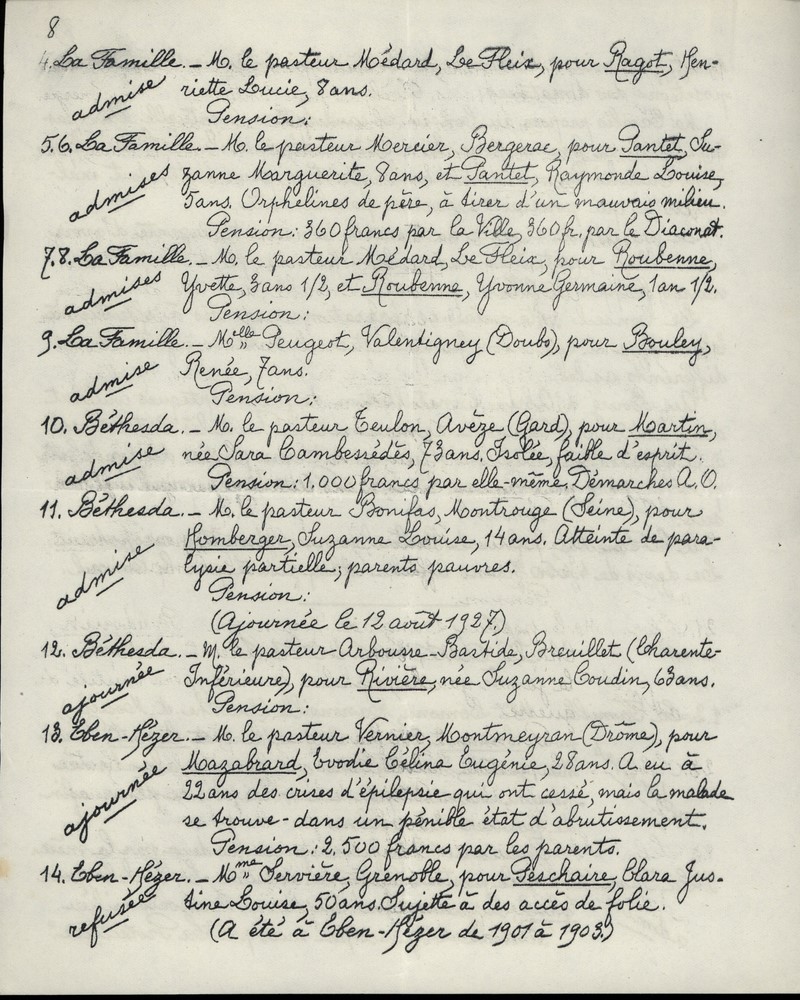 8
4. La Famille. - M. le pasteur Médard, Le Fleix, pour Ragot, Hen-
admise
riette Lucie, 8 ans.
Pension:
5.6. La Famille. - M. le pasteur Mercier, Bergerac, pour Pantet, Su-
admises
zanne Marguerite, 8 ans, et Pantet, Raymonde Louise,
5 ans. Orphelines de père, à tirer d'un mauvais milieu.
Pension: 360 francs par la Ville, 360 fr. par le Diaconat.
7.8. La Famille. - M. le pasteur Médard, Le Fleix, pour Roubenne,
admises
Yvette, 3 ans 1/2, et Roubenne, Yvonne Germaine, 1 an 1/2.
Pension:
9. La Famille. - Melle Peugeot, Valentigney (Doubs), pour Bouley,
admise
Renée, 7 ans.
Pension:
10. Béthesda. - M. le pasteur Teulon, Avèze (Gard), pour Martin,
admise
née Sara Cambessédès, 73 ans. Isolée, faible d'esprit.
Pension: 1.000 francs par elle-même. Démarches A.O.
11. Béthesda. - M. le pasteur Bonifas, Montrouge (Seine), pour
admise
Homberger, Suzanne Louise, 14 ans. Atteinte de para-
lysie partielle; parents pauvres.
Pension:
(Ajournée le 12 août 1927.)
12. Béthesda. - M. le pasteur Arbousse-Bastide, Breuillet (Charente-
ajournée
Inférieure), pour Rivière, née Suzanne Coudin, 63 ans.
Pension:
13. Eben-Hézer. - M. le pasteur Vernier, Montmeyran (Drôme), pour
ajournée
Mazabrard, Evodie Célina Eugénie, 28 ans. A eu à
22 ans des crises d'épilepsie qui ont cessé, mais la malade
se trouve - dans un pénible état d'abrutissement.
Pension: 2.500 francs par les parents.
14. Eben-Hézer. - Mme Servière, Grenoble, pour Peschaire, Clara Jus-
refusée
tine Louise, 50 ans. Sujette à des accès de folie.
(A été à Eben-Hézer de 1901 à 1903.)